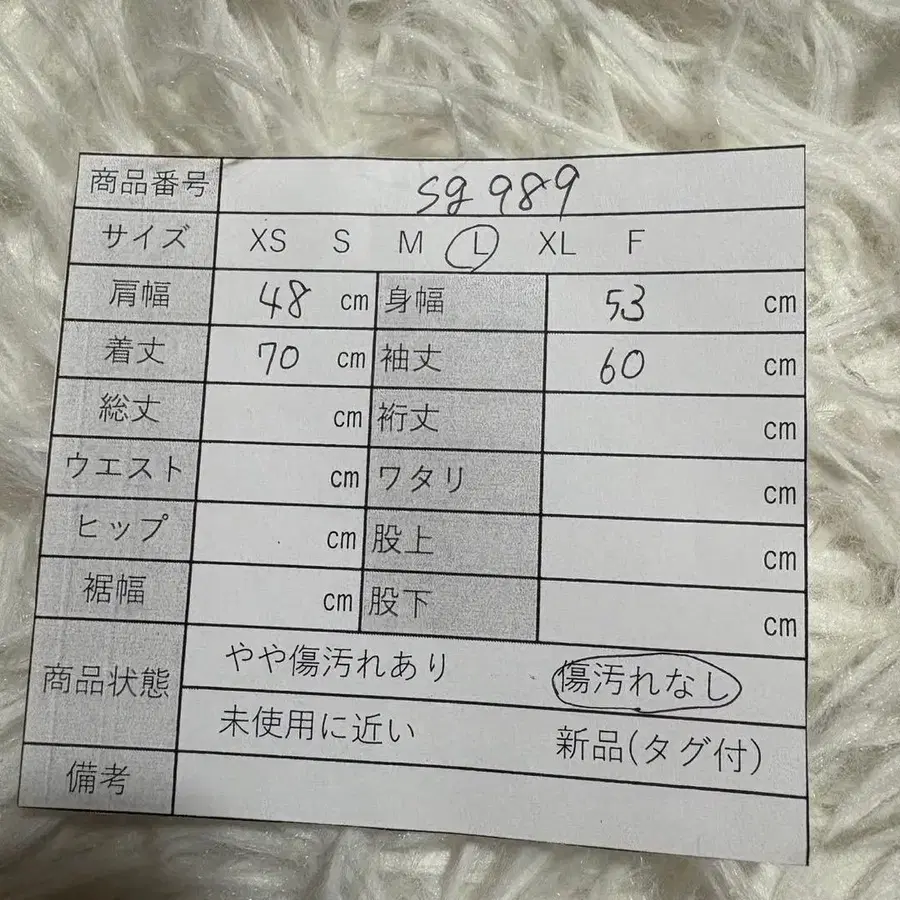 商品番号 sg989
サイズ XS S M L XL F
肩幅 48 cm 身幅 53 cm
着丈 70 cm 袖丈 60 cm
総丈 cm 裄丈 cm
ウエスト cm ワタリ cm
ヒップ cm 股上 cm
裾幅 cm 股下 cm
商品状態 やや傷汚れあり 傷汚れなし
未使用に近い 新品(タグ付)
備考